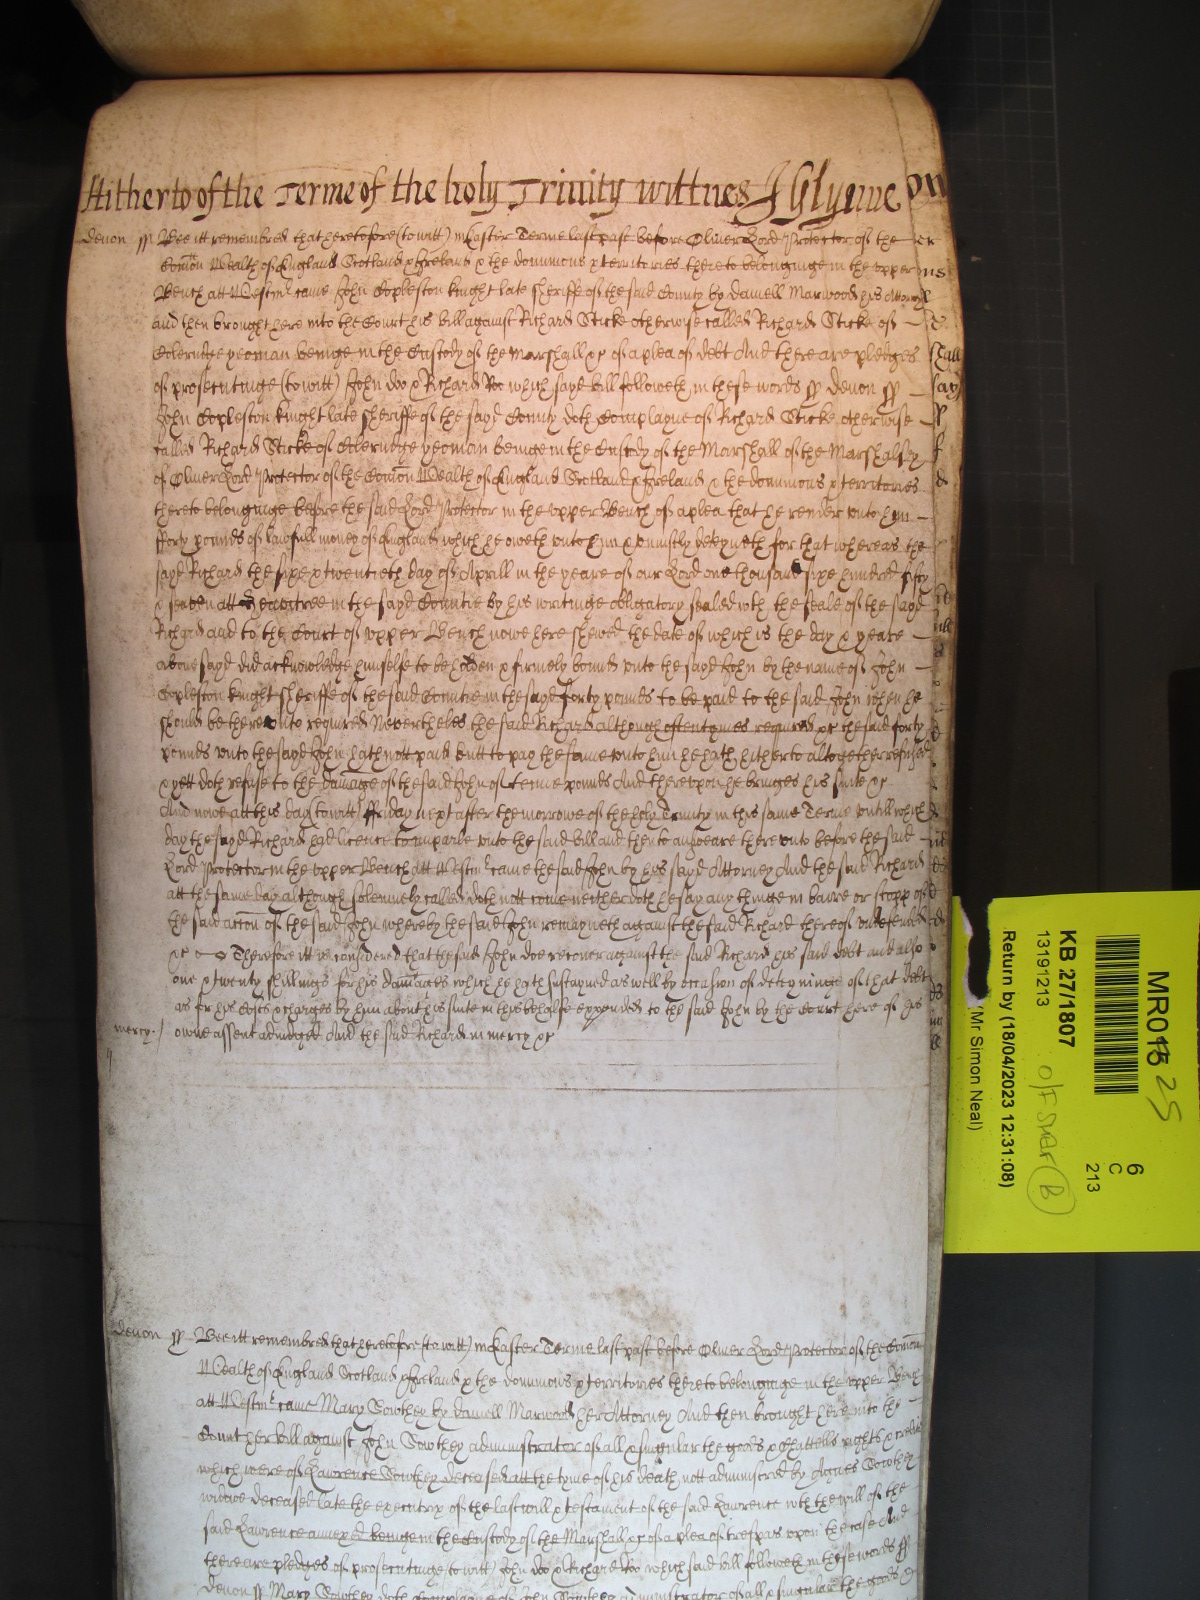 Hitherto of the Terme of the holy Trinity wittnes J Glynne
Devon ss Bee itt remembred that heretofore (to witt) in Easter Terme last past before Oliver Lord Protector of the
Comon Wealth of England Scotland & Ireland & the dominions & territories thereto belonginge in the upper
Bench att Westmr came John Copleston knight late Sheriffe of the said County by Daniell Marwood his Attorny
and then brought here into the Court his bill against Richard Sticke otherwise called Richard Sticke of
Coleridge yeoman beinge in the Custody of the Marshall &c of a plea of debt And there are pledges
of prosecutinge (to witt) John doo & Richard Roo which sayd bill followeth in these words ss Devon ss
John Copleston knight late Sheriffe of the sayd County doth Complayne of Richard Sticke otherwise
called Richard Sticke of Coleridge yeoman beinge in the Custody of the Marshall of the Marshalsey
of Oliver Lord Protector of the Comon Wealth of England Scotland & Ireland & the dominions & territories
thereto belonginge before the said Lord Protector in the upper Bench of a plea that he render unto him
fforty pounds of lawfull money of England which he oweth unto him & uniustly deteyneth for that whereas the
sayd Richard the sixe & twentieth day of Aprill in the yeare of our Lord one thousand sixe hundred fifty
& seaven att Heavitree in the sayd Countie by his writinge obligatory sealed wth the seale of the sayd
Richard and to the Court of upper Bench nowe here shewed the date of which is the day & yeare
abovesayd did acknowledge himselfe to be holden & firmely bound unto the sayd John by the name of John
Copleston knight Sheriffe of the said Countie in the sayd forty pounds to be paid to the said John when he
should be thereunto required Nevertheles the said Richard although oftentymes required &c the said forty
pounds unto the sayd John hath nott paid butt to pay the same unto him he hath hitherto altogether refused
& yett doth refuse to the damage of the said John of tenne pounds And thereupon he bringes his suite &c
And nowe att this day (to witt) ffriday next after the morrowe of the holy Trinity in this same Terme untill which
day the sayd Richard had licence to imparle unto the said bill and then to answeare thereunto before the said
Lord Protector in the upper Bench att Westmr came the said John by his sayd Attorney And the said Richard
att the same day although solemnely called doth nott come neither doth he say any thinge in barre or stopp of
the said action of the said John whereby the said John remayneth against the said Richard thereof undefended
&c Therefore itt is considered that the said John doe recover against the said Richard his said debt and also
one & twenty shillings for his damages which he hath sustayned as well by occasion of deteyninge of that debt
as for his Costs & charges by him about his suite in this behalfe expended to the said John by the Court here of his
mercy owne assent adiudged And the said Richard in mercy &c
Devon ss Bee itt remembred that heretofore (to witt) in Easter Terme last past before Oliver Lord Protector of the Comon
Wealth of England Scotland & Ireland & the dominions & territories thereto belonginge in the upper Bench
att Westmr came Mary Sowthey by Daniell Marwood her Attorney And then brought here into the
Court her bill against John Sowthey administrator of all & singular the goods & Chattells rights & credits
which were of Lawrence Sowthey deceased att the tyme of his death nott administred by Agnes Sowthey
widdowe deceased late the executrix of the last will & testament of the said Lawrence wth the will of the
said Lawrence annexed beinge in the Custody of the Marshall &c of a plea of trespas upon the case And
there are pledges of prosecutinge (to witt) John doo & Richard Roo which said bill followeth in these words ss
Devon ss Mary Sowthey doth Complayne of John Sowthey administrator of all & singular the goods &
MR018 25
6
C
213
KB 27/1807
13191213
Return by (18/04/2023 12:31:08)
(Mr Simon Neal)